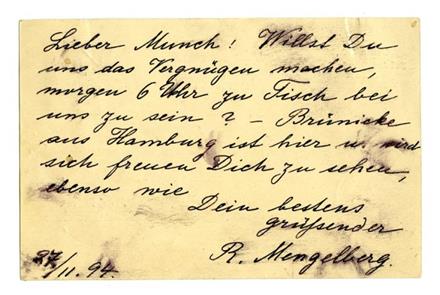 Lieber Munch! Willst Du
uns das Vergnügen machen,
morgen 6 Uhr zu Tisch bei
uns zu sein? – Brünicke
aus Hamburg ist hier u. wird
sich freuen Dich zu sehen,
ebenso wie
Dein bestens
grüßender
R. Mengelberg.
/11. 94.